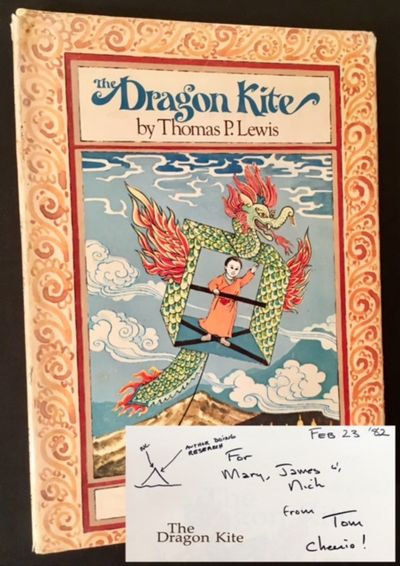 The
Dragon Kite
by Thomas P. Lewis
FEB 23 '82
AUTHOR DOING
RESEARCH
For
Mary, James &
Nich
from
Tom
Cheerio!
The
Dragon Kite